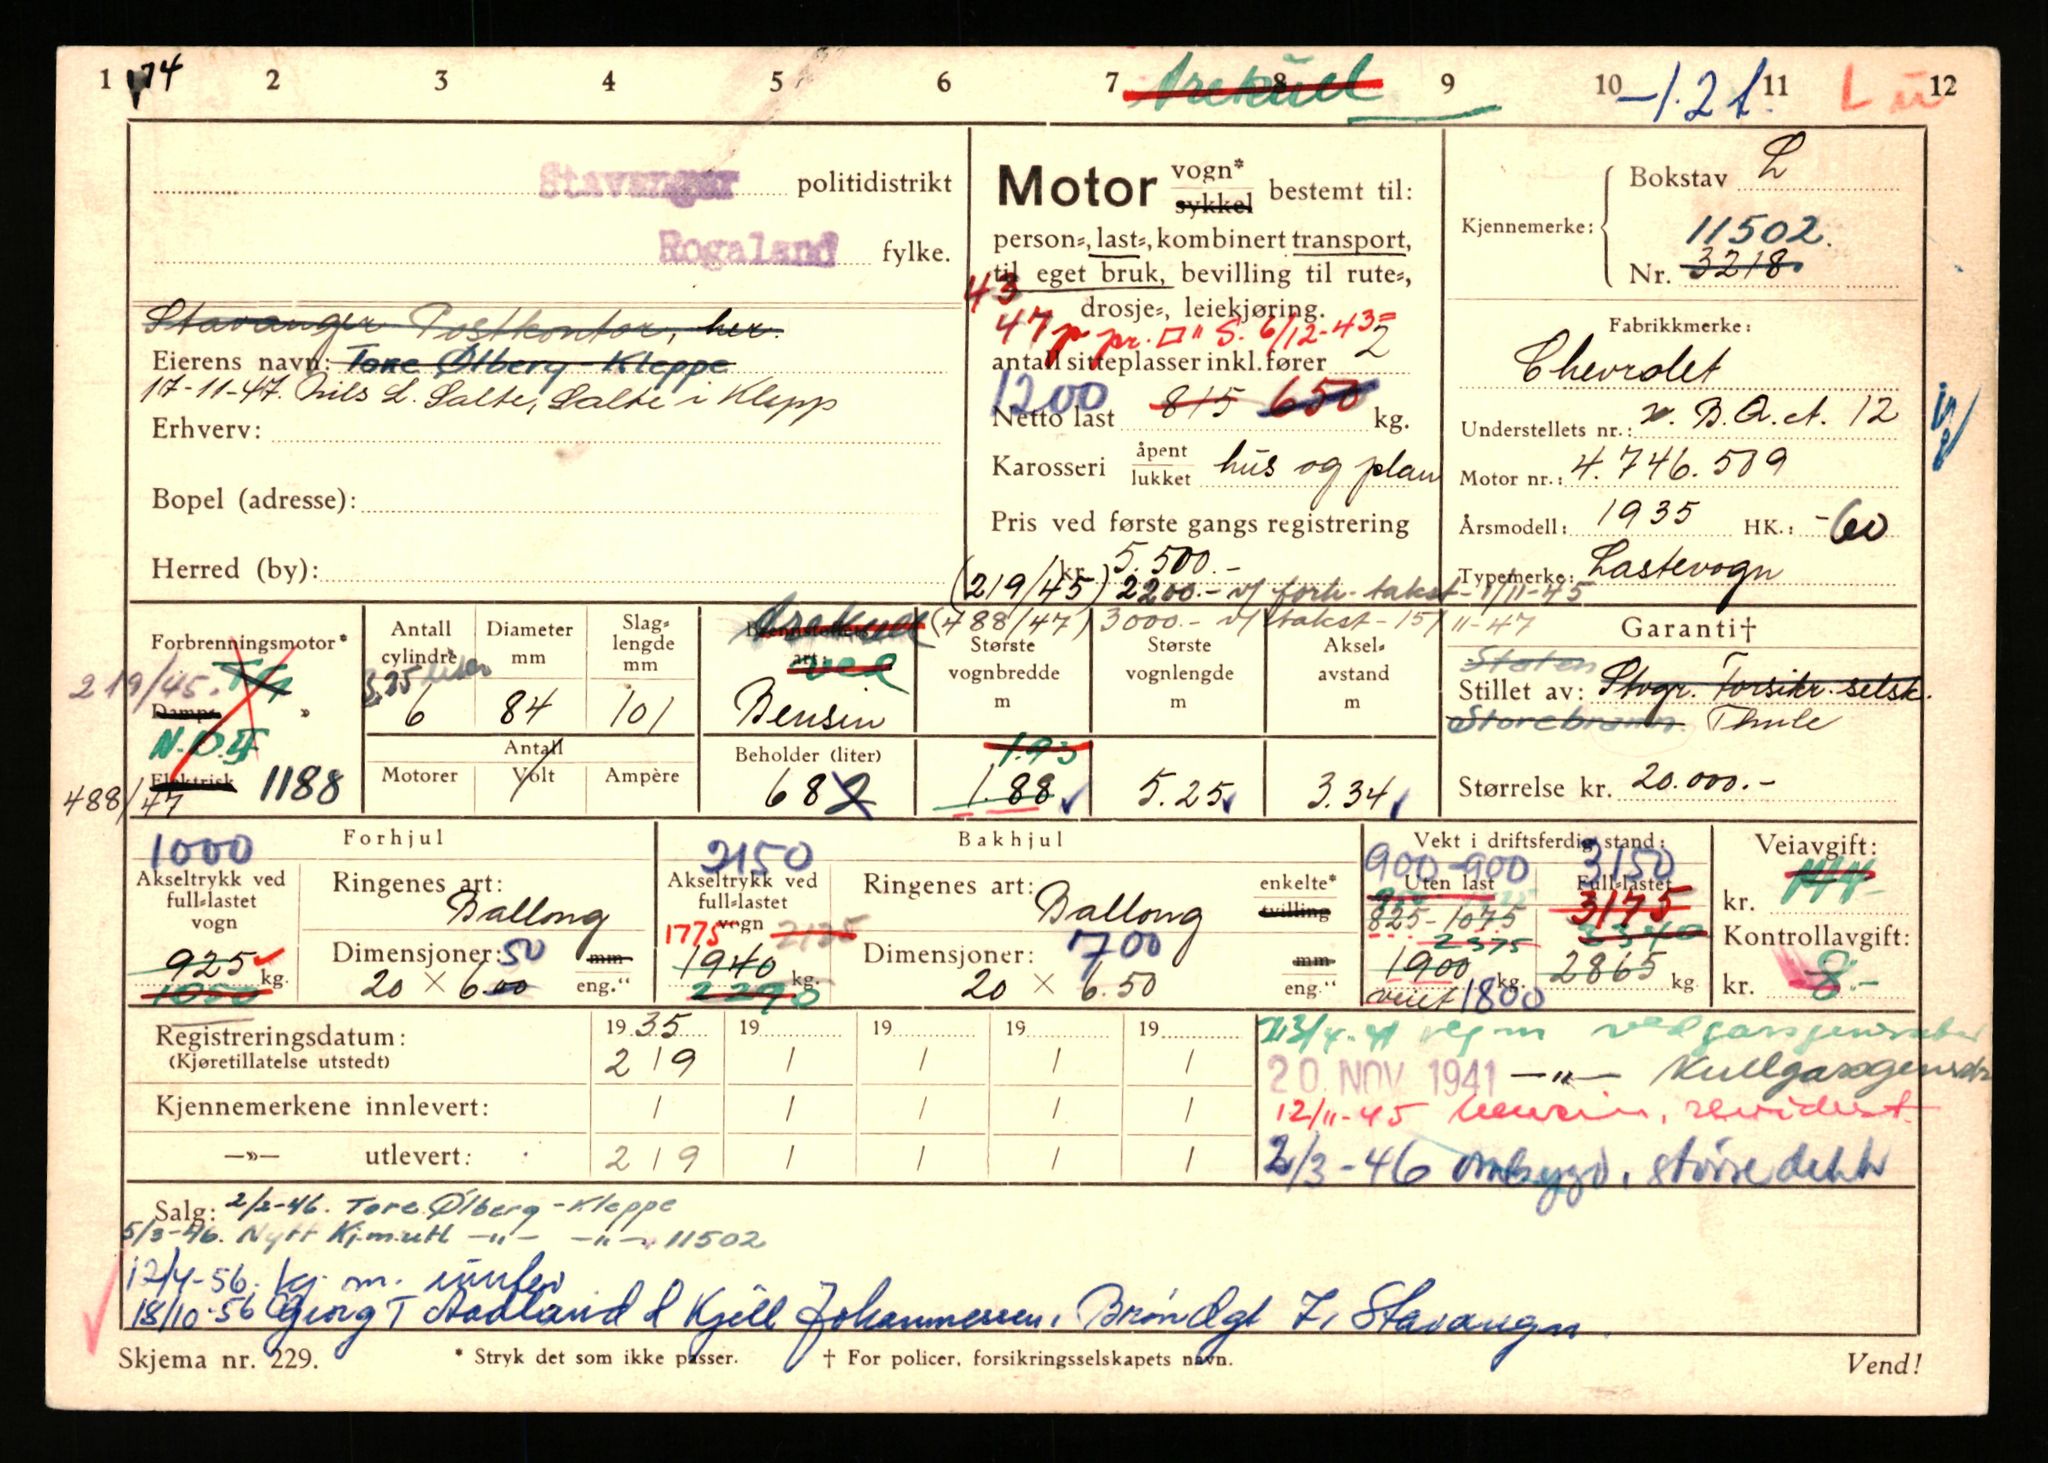 1 74 2 3 4 5 6 7 8 9 10 11 12
Trekull
-1.2 t.
L
Stavanger politidistrikt
Rogaland fylke.
Motor vogn* sykkel bestemt til:
person-, last-, kombinert transport,
til eget bruk, bevilling til rute-,
drosje-, leiekjøring.
43
47 p pr. S. 6/12-43
antall sitteplasser inkl. fører 2
1200
Netto last 815 650 kg.
Karosseri åpent lukket hus og plan
Pris ved første gangs registrering
kr. 5.500.-
(219/45) 2200.- v/ forh. takst - 1/11-45
(488/47) 3000.- v/ takst - 15/11-47
Kjennemerke: Bokstav L
11502.
Nr. 3218
Fabrikkmerke:
Chevrolet
Understellets nr.: B.A. 12
Motor nr.: 4.746.509
Årsmodell: 1935 HK.: -60
Typemerke: Lastevogn
Stavanger Postkontor, her.
Eierens navn: Tore Ølberg - Kleppe
17-11-47. Nils L. Salte, Salte i Klepp
Erhverv:
Bopel (adresse):
Herred (by):
Forbrenningsmotor*
219/45.
Damp »
Elektrisk 1188
488/47
Antall cylindre 3,25 liter 6
Diameter mm 84
Slag-lengde mm 101
Antall
Motorer Volt Ampère
Trekull
Brennstoffets art:
ved
Bensin
Beholder (liter)
68
Største vognbredde m
1.93
1.88
Største vognlengde m
5.25
Aksel-avstand m
3.34
Garanti†
Staten
Stillet av: Stvgr. Forsikr. selsk.
Storebrann. Thule
Størrelse kr. 20.000.-
Forhjul
1000
Akseltrykk ved full-lastet vogn
925 kg.
1050
Ringenes art: Ballong
Dimensjoner: 50 mm
20 × 6.00 eng."
Bakhjul
2150
Akseltrykk ved full-lastet vogn
1775 2125
1940 kg.
2290
Ringenes art: Ballong enkelte* tvilling
Dimensjoner: 700 mm
20 × 6.50 eng."
Vekt i driftsferdig stand:
900-900 3150
Uten last Full-lastet
825-1075 3175
2375 3340
1900 kg. 2865 kg.
veiet 1800
Veiavgift:
kr.
Kontrollavgift:
kr. 8.-
Registreringsdatum: 1935 19 19 19 19
(Kjøretillatelse utstedt) 2 / 9 / / / /
Kjennemerkene innlevert: / / / / /
—»— utlevert: 2 / 9 / / / /
vedgassgenerator
20. NOV. 1941 —"— Kullgassgenerator
12/11-45 bensin, revidert
2/3-46 ombygd, større dekk
Salg: 2/3-46. Tore Ølberg - Kleppe
5/3-46. Nytt Kj.m. utl —"— —"— 11502
12/4-56. kj. m. innlev
18/10-56 Georg T Aadland & Kjell Johannessen, Brøndgt 7, Stavanger.
Skjema nr. 229. * Stryk det som ikke passer. † For policer, forsikringsselskapets navn. Vend!